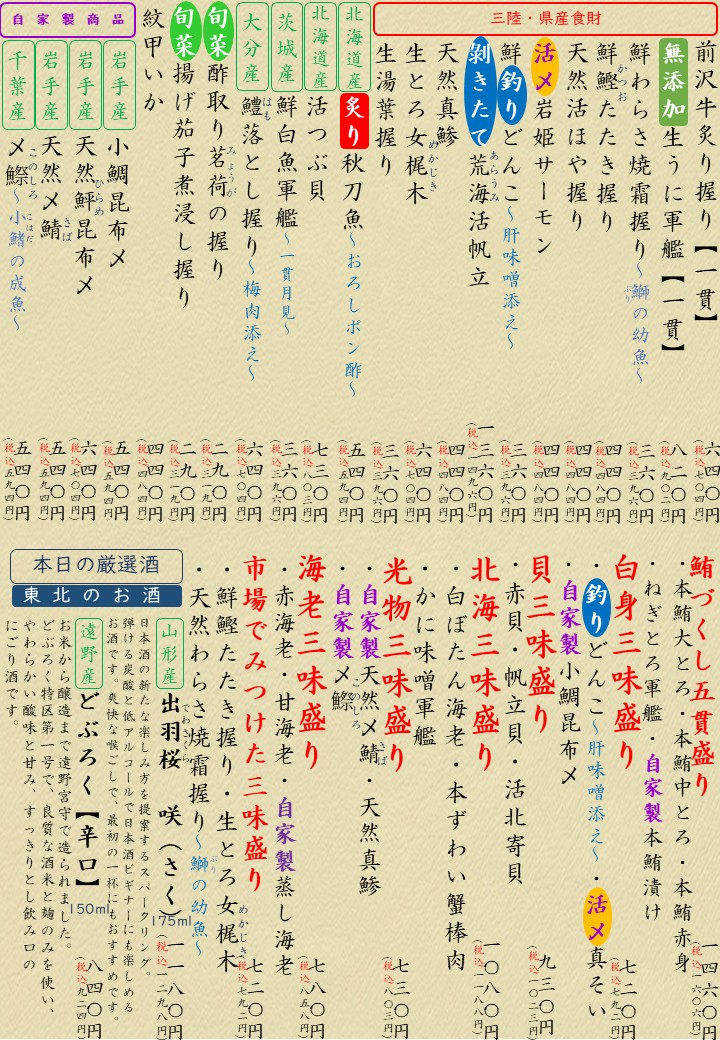 三陸・県産食財
前沢牛炙り握り【一貫】 六四〇円(税込七〇四円)
無添加 生うに軍艦【一貫】 八二〇円(税込九〇二円)
鮮わらさ焼霜握り～鰤の幼魚～ 三六〇円(税込三九六円)
ぶり
鮮鰹たたき握り 四四〇円(税込四八四円)
かつお
天然活ほや握り 四四〇円(税込四八四円)
活〆岩姫サーモン 四四〇円(税込四八四円)
鮮釣りどんこ～肝味噌添え～ 三六〇円(税込三九六円)
剥きたて荒海活帆立 一三六〇円(税込一四九六円)
あらうみ
天然真鯵 四四〇円(税込四八四円)
生とろ女梶木 六四〇円(税込七〇四円)
めかじき
生湯葉握り 三六〇円(税込三九六円)
北海道産 炙り秋刀魚～おろしポン酢～ 五四〇円(税込五九四円)
北海道産 活つぶ貝 七三〇円(税込八〇三円)
茨城産 鮮白魚軍艦～一貫月見～ 三六〇円(税込三九六円)
大分産 鱧落とし握り～梅肉添え～ 六四〇円(税込七〇四円)
はも
旬菜 酢取り茗荷の握り 二九〇円(税込三一九円)
みょうが
旬菜 揚げ茄子煮浸し握り 二九〇円(税込三一九円)
紋甲いか 四四〇円(税込四八四円)
自家製商品
岩手産 小鯛昆布〆 五四〇円(税込五九四円)
岩手産 天然鮃昆布〆 六四〇円(税込七〇四円)
ひらめ
岩手産 天然〆鯖 五四〇円(税込五九四円)
さば
千葉産 〆鰶～小鰭の成魚～ 五四〇円(税込五九四円)
このしろ
こはだ
鮪づくし五貫盛り 一四六〇円(税込一六〇六円)
・本鮪大とろ・本鮪中とろ・本鮪赤身
・ねぎとろ軍艦・自家製本鮪漬け
白身三味盛り 七二〇円(税込七九二円)
・釣りどんこ～肝味噌添え～・活〆真そい
・自家製小鯛昆布〆
貝三味盛り 九三〇円(税込一〇二三円)
・赤貝・帆立貝・活北寄貝
北海三味盛り 一〇八〇円(税込一一八八円)
・白ぼたん海老・本ずわい蟹棒肉
・かに味噌軍艦
光物三味盛り 七三〇円(税込八〇三円)
・自家製天然〆鯖・天然真鯵
さば
・自家製〆鰶
このしろ
海老三味盛り 七八〇円(税込八五八円)
・赤海老・甘海老・自家製蒸し海老
市場でみつけた三味盛り 七二〇円(税込七九二円)
・鮮鰹たたき握り・生とろ女梶木
めかじき
・天然わらさ焼霜握り～鰤の幼魚～
ぶり
本日の厳選酒
東北のお酒
山形産 出羽桜 咲(さく) 175ml 一一八〇円(税込一二九八円)
でわざくら
日本酒の新たな楽しみ方を提案するスパークリング。
弾ける炭酸と低アルコールで日本酒ビギナーにも楽しめる
お酒です。爽快な喉ごしで、最初の一杯にもおすすめです。
遠野産 どぶろく【辛口】 150ml 八四〇円(税込九二四円)
お米から醸造まで遠野宮守で造られました。
どぶろく特区第一号で、良質な酒米と麹のみを使い、
やわらかい酸味と甘み、すっきりとし飲み口の
にごり酒です。